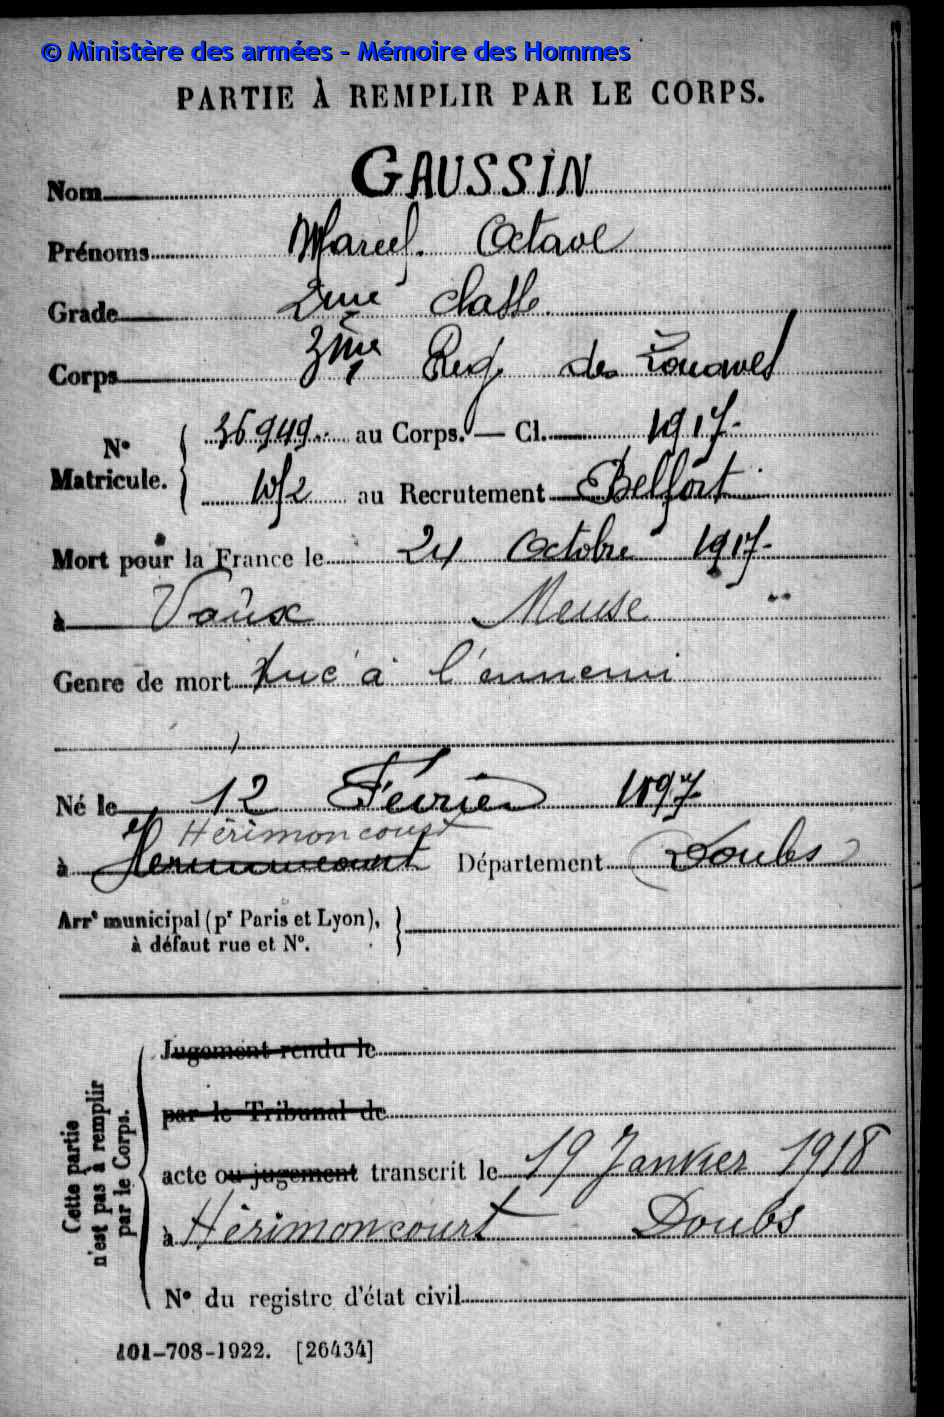 © Ministère des armées - Mémoire des Hommes
PARTIE À REMPLIR PAR LE CORPS.
Nom GAUSSIN
Prénoms Marcel. Octave
Grade 2ème classe
Corps 3ème Reg. des Zouaves
N° Matricule. 36949 au Corps. — Cl. 1917
au Recrutement Belfort
Mort pour la France le 24 Octobre 1917
à Vaux Meuse
Genre de mort Tué à l'ennemi
Né le 12 Février 1897
Hérimoncourt
à Département Doubs
Arrt municipal (pr Paris et Lyon),
à défaut rue et N°.
Cette partie n'est pas à remplir par le Corps.
Jugement rendu le
par le Tribunal de
acte ou jugement transcrit le 19 Janvier 1918
à Hérimoncourt Doubs
N° du registre d'état civil
101-708-1922. [26434]